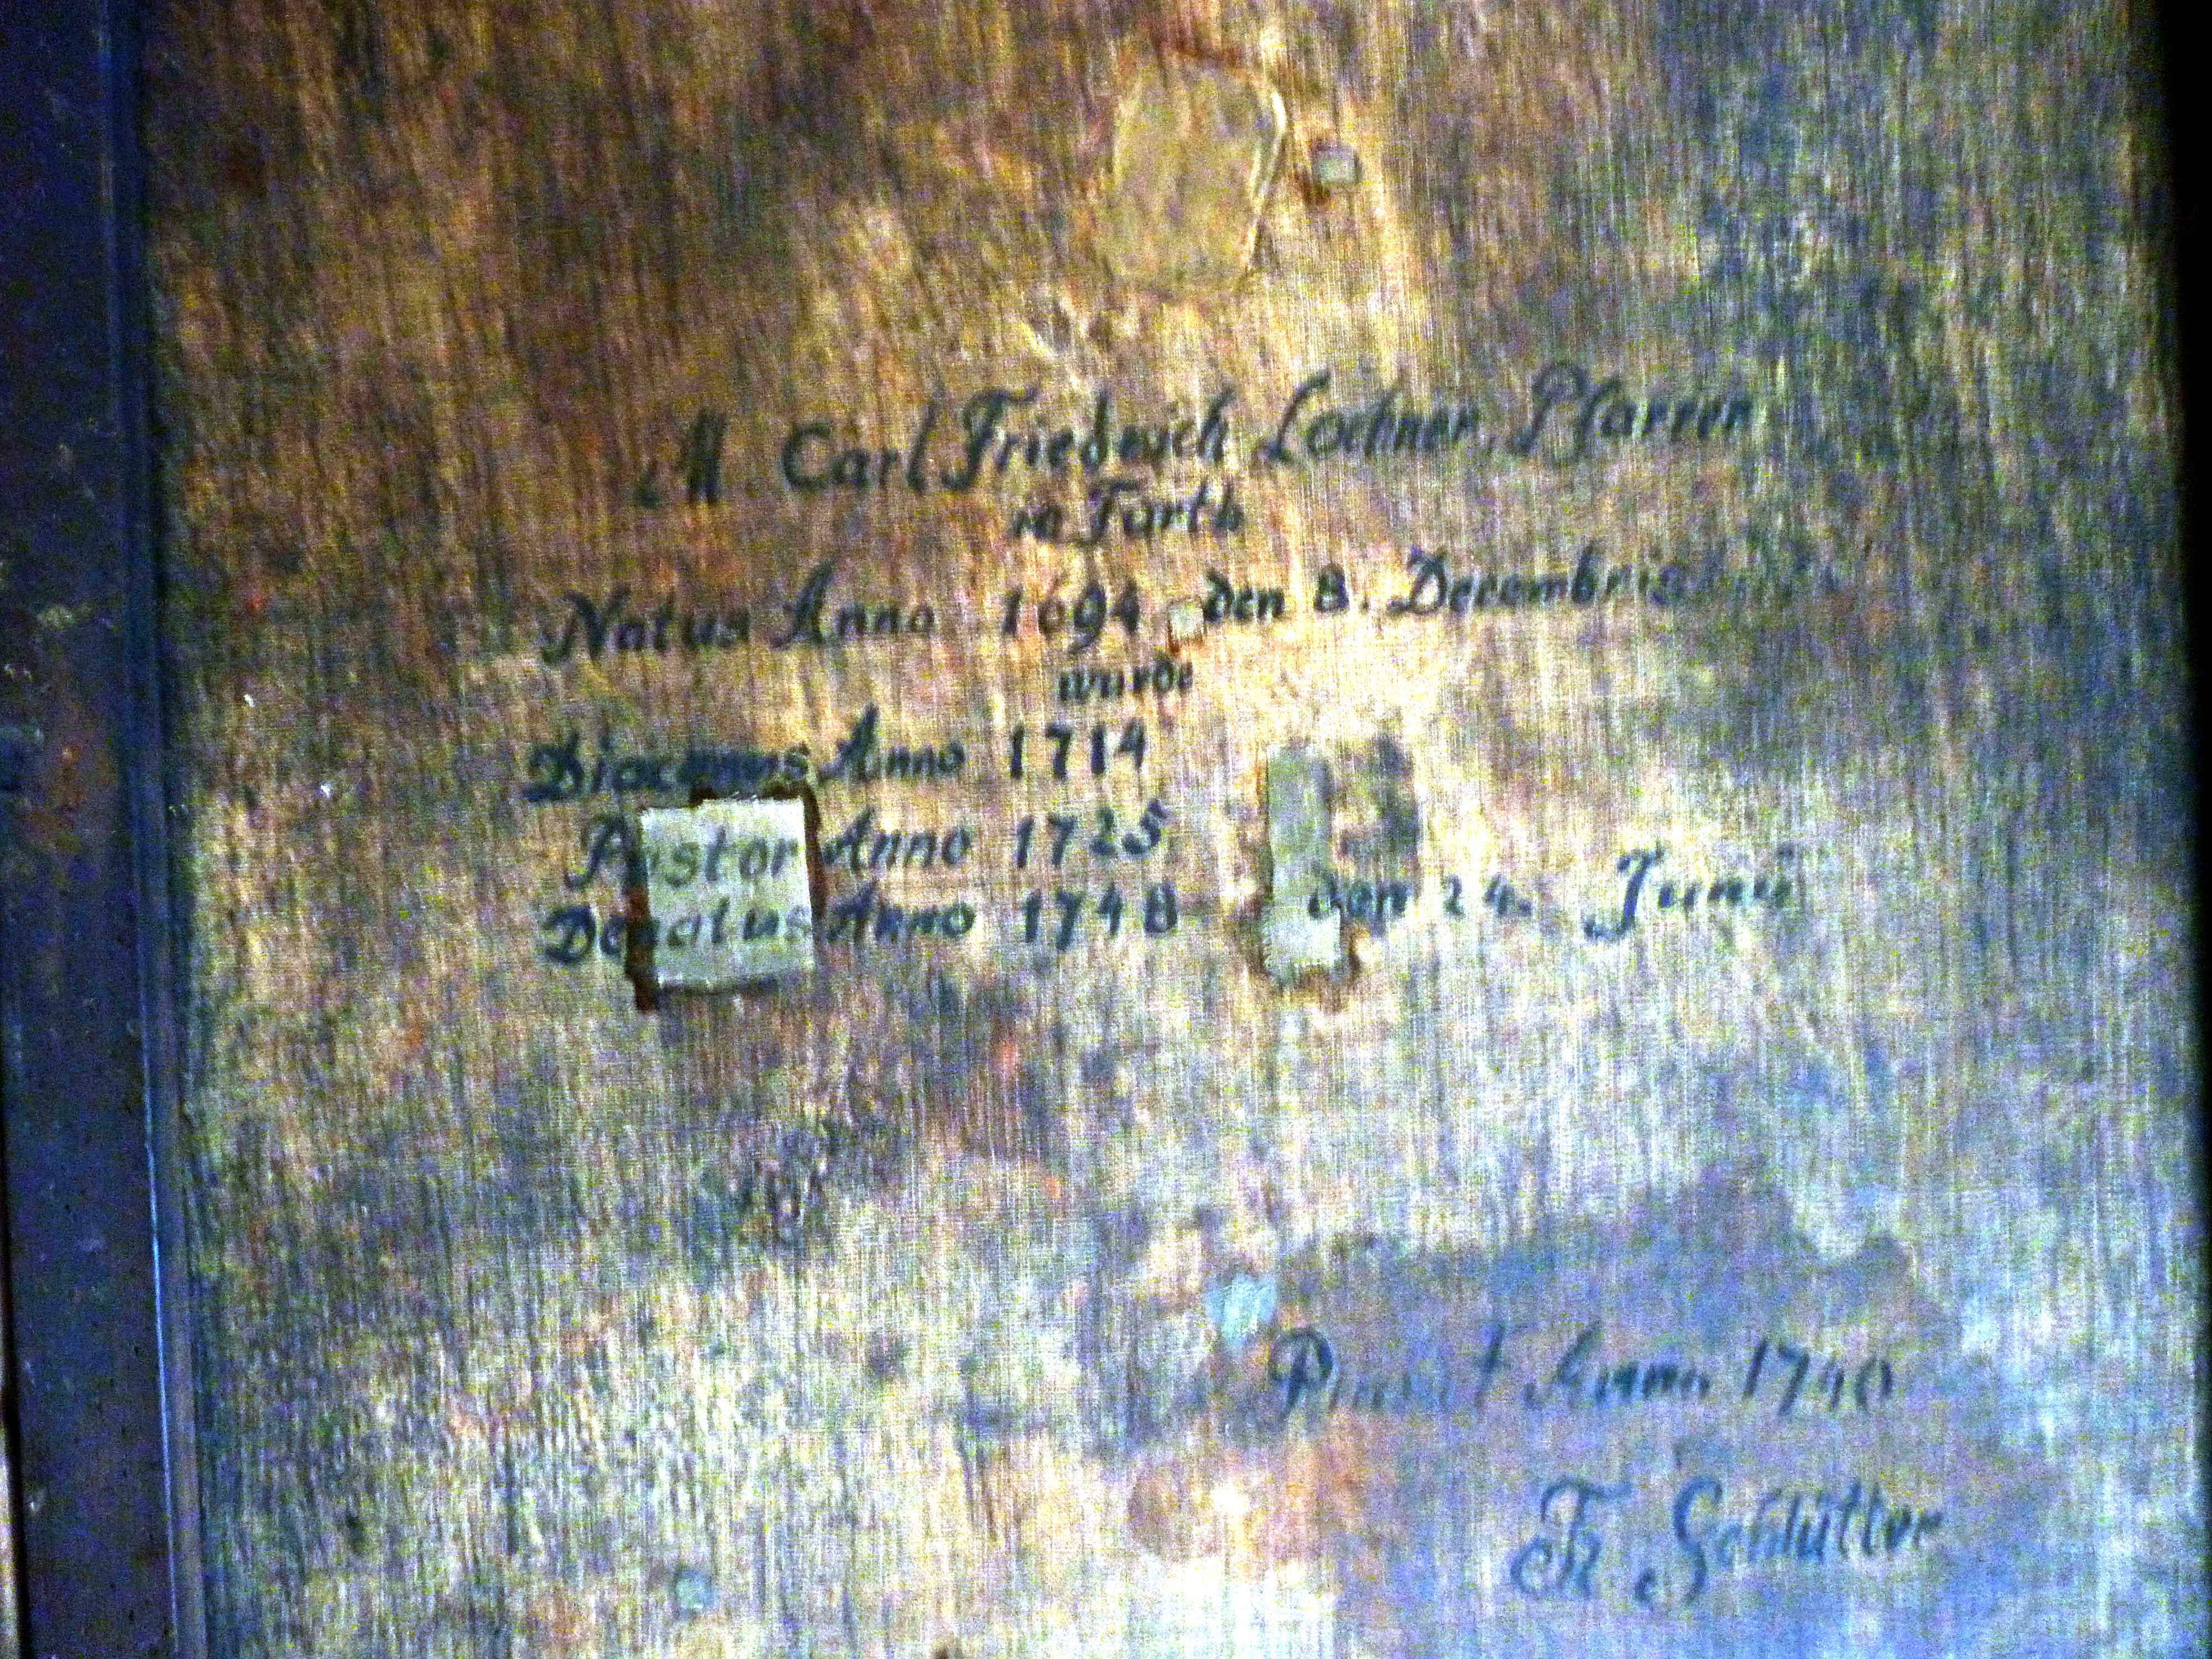 M Carl Friederich Lochner, Pfarrer
in Fürth
Natus Anno 1694 den 8. Decembris
wurde
Diaconus Anno 1714
Pastor Anno 1725
Denatus Anno 1748 den 24. Junii
Pinxit Anno 1740
Fr Schlütter